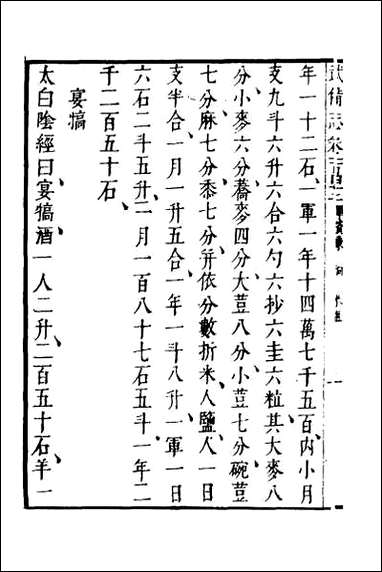 武備志卷一百
年一十二石一軍一年十四萬七千五百內小月
支九斗六升六合六勺六抄六圭六粒其大麥八
分小麥六分蕎麥四分大荳八分小荳七分碗荳
七分麻七分黍七分并依分數折米人鹽人一日
支半合一月一升五合一年一斗八升一軍一日
六石二斗五升一月一百八十七石五斗一年二
千二百五十石
宴犒
太白陰經曰宴犒酒一人二升二百五十石羊一